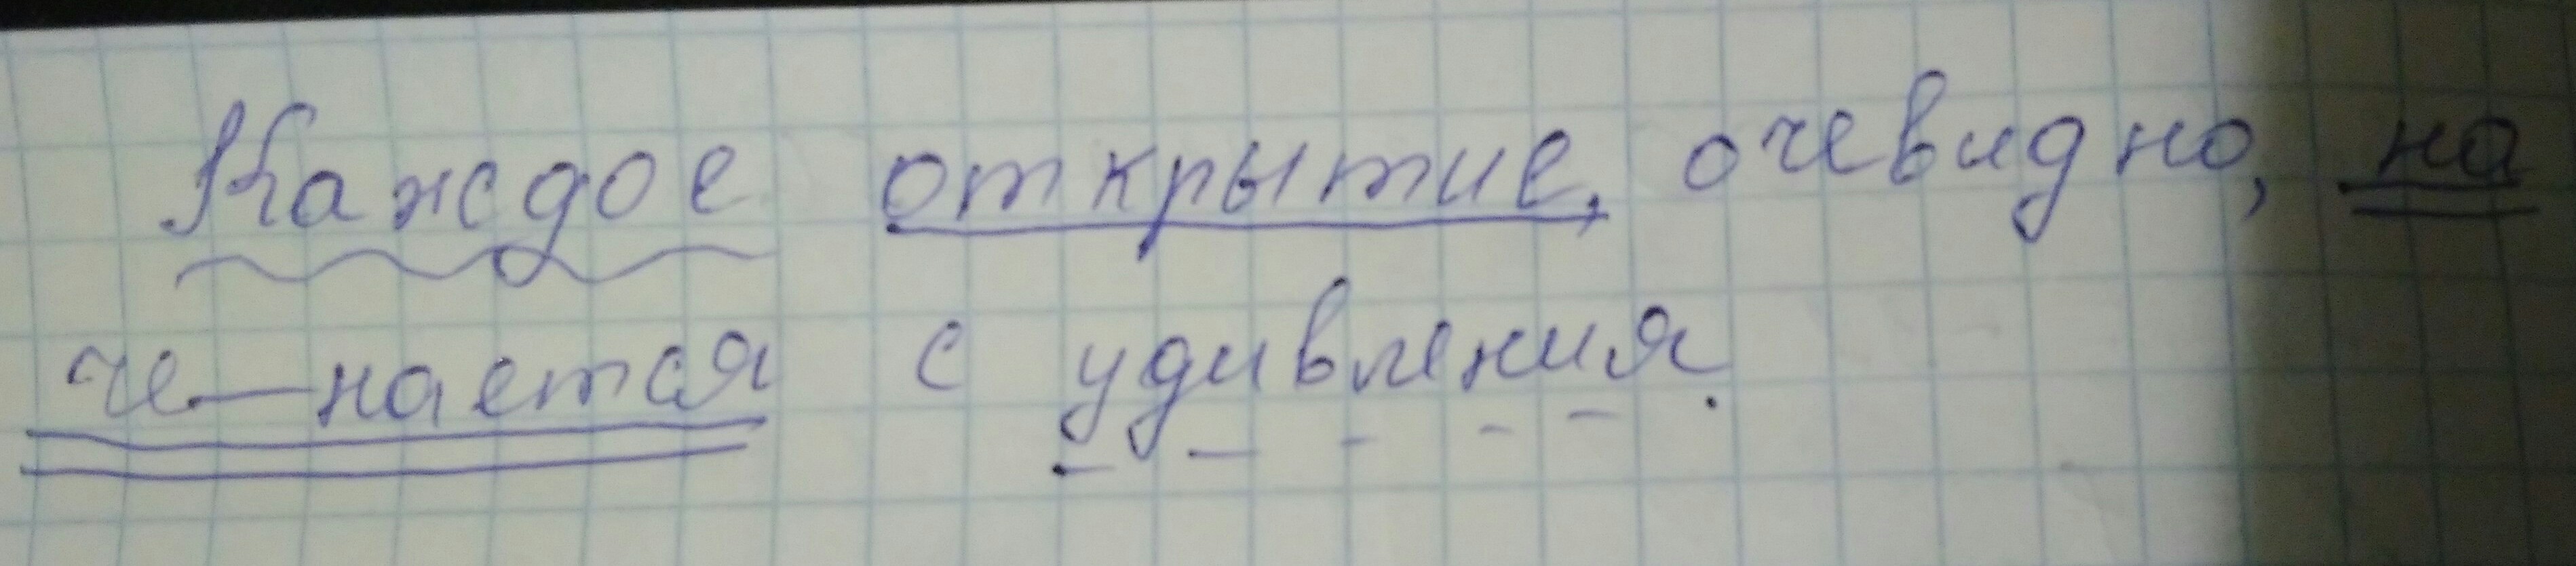 Каждое открытие, очевидно, на
че-нается с удивления.